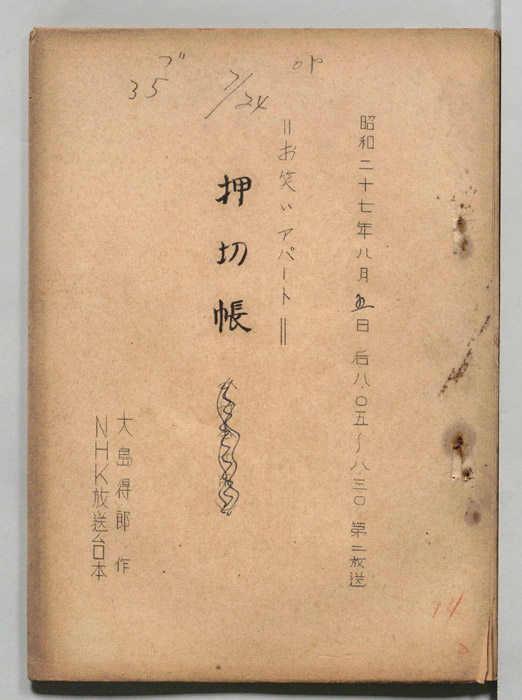 35
7/24
昭和二十七年八月五日 后八.〇五〜八.三〇 第二放送
＝お笑いアパート＝
押切帳
大島得郎 作
NHK放送台本
14